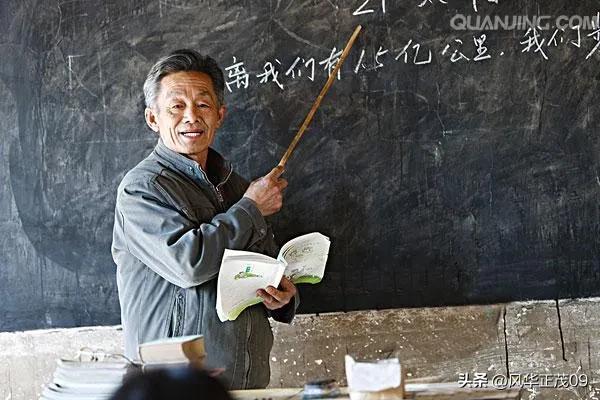 QUANJING.COM
离我们有1.5亿公里.我们
头条 @风华正茂09